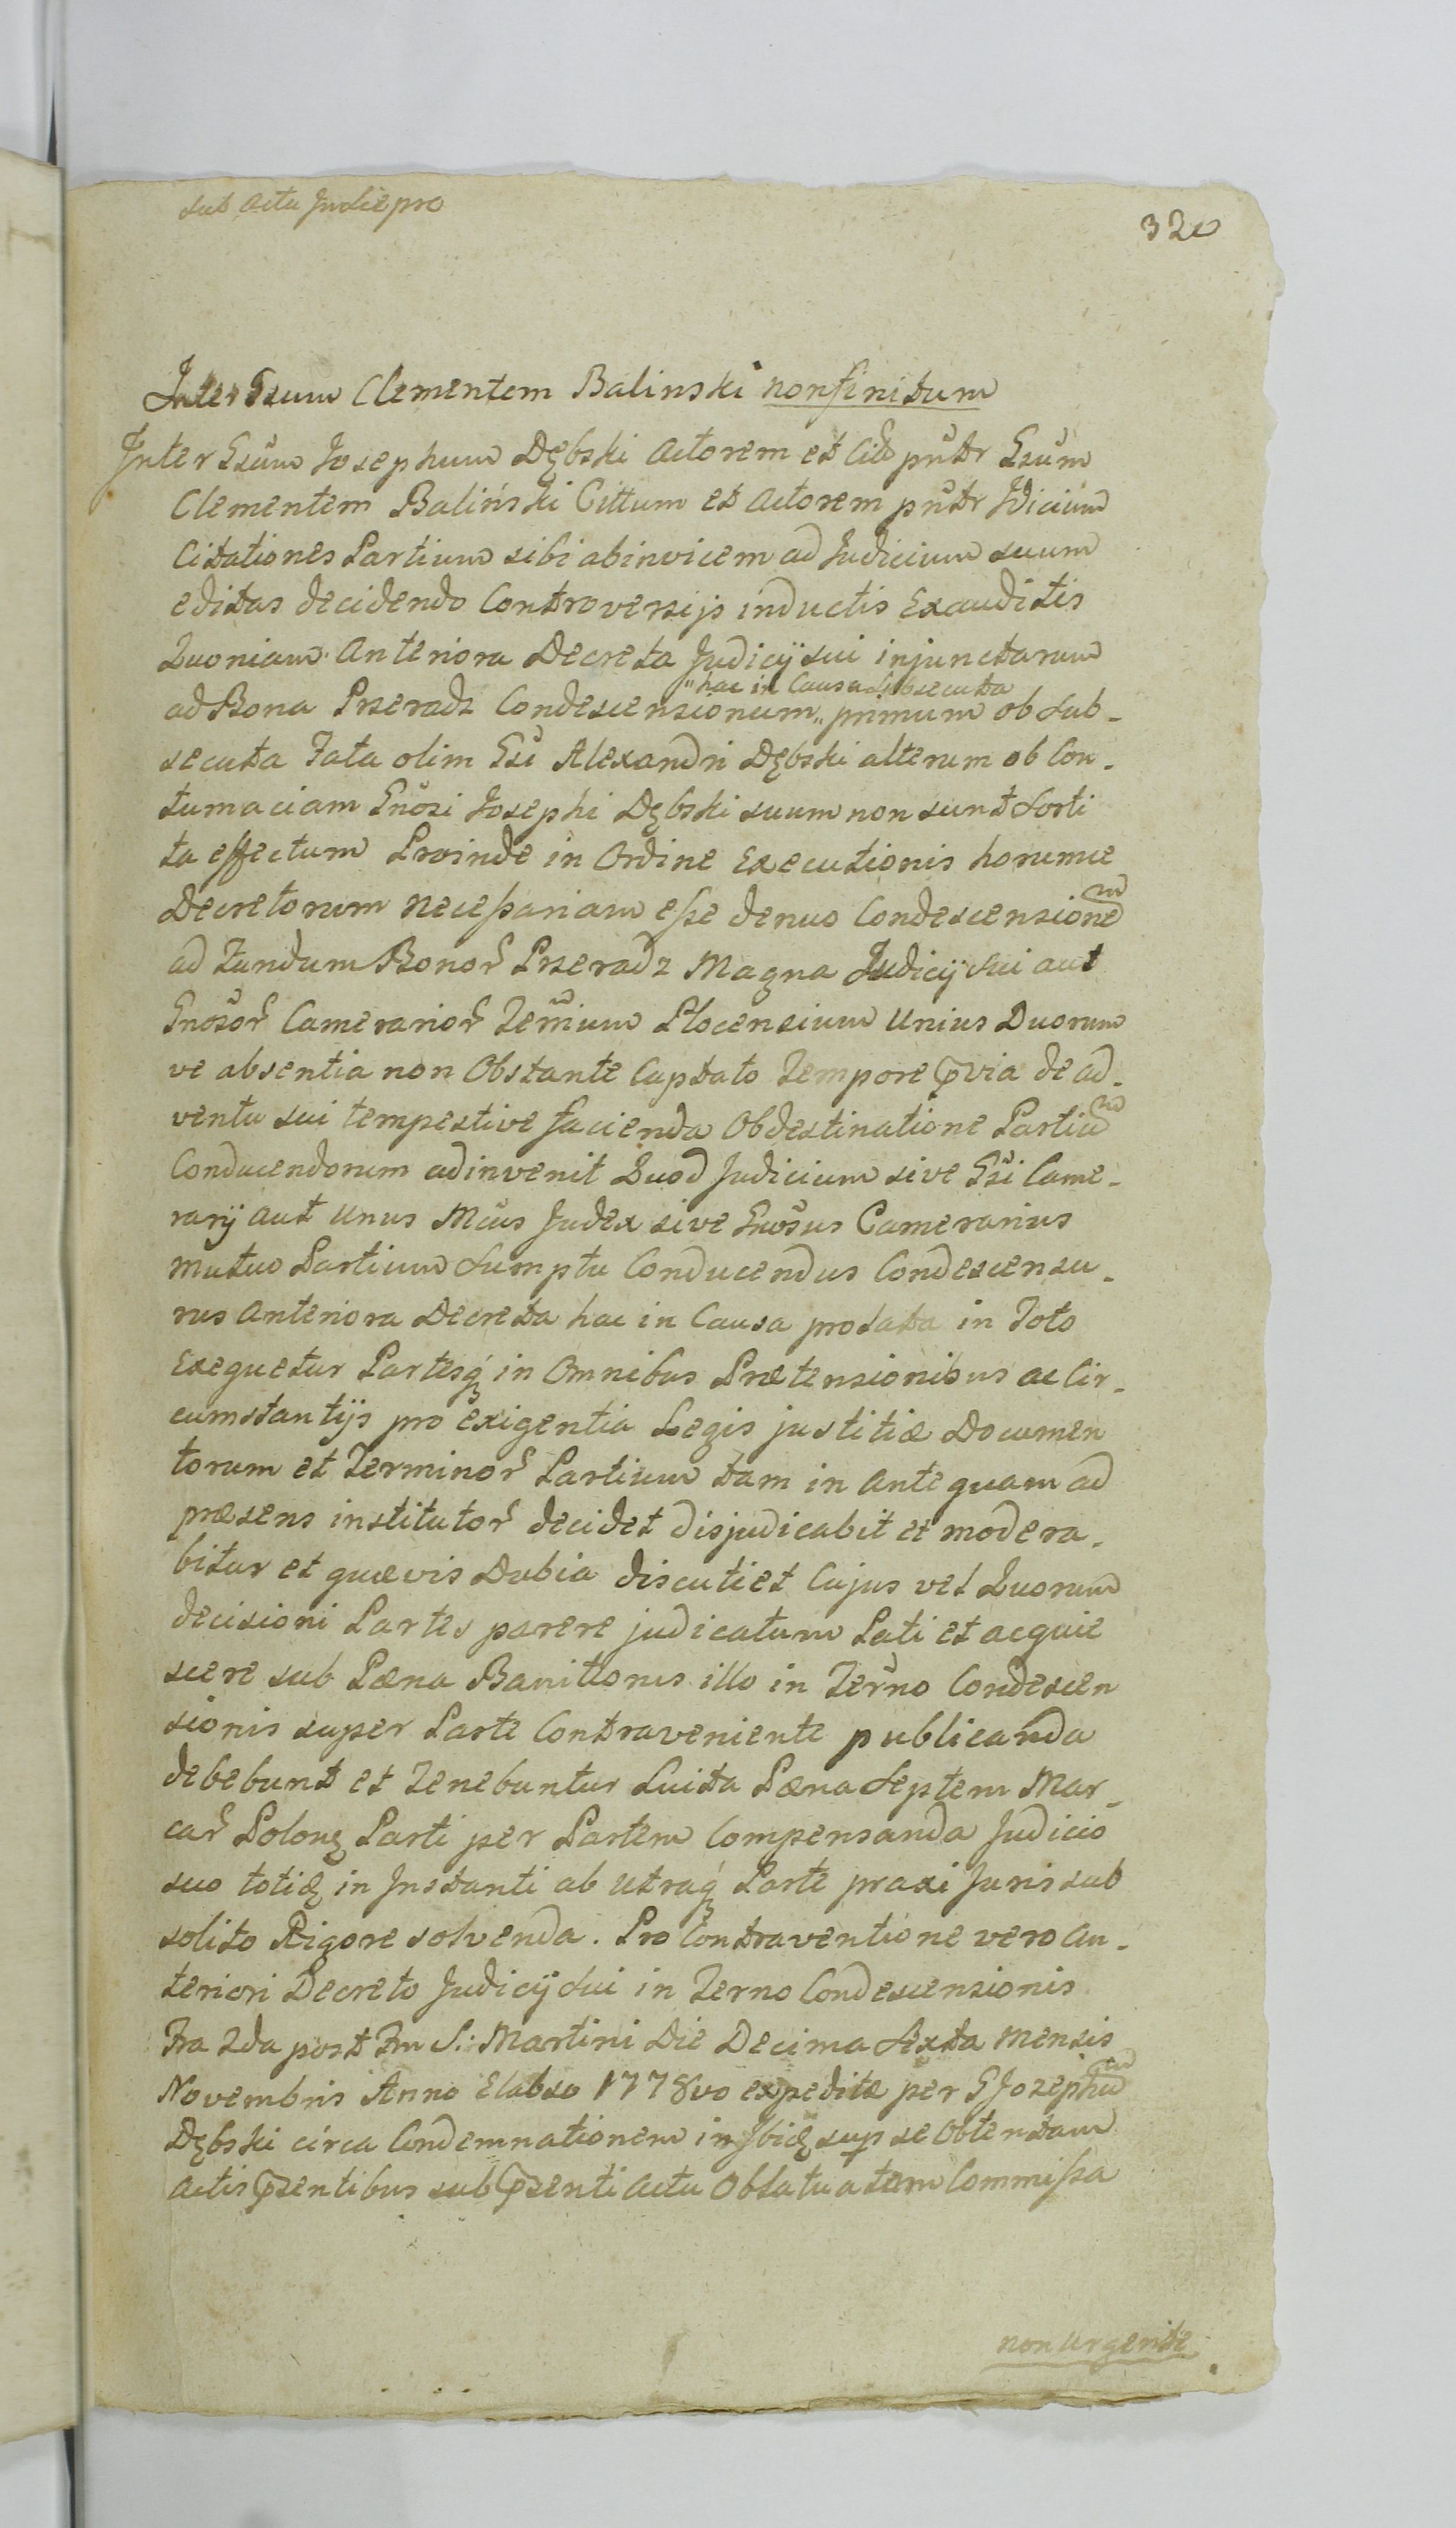 sub Actu Judië pro
320
Inter Gsum Clementem Balinski non finitum
Inter Gsum Josephum Dębski Actorem et Citt pntr Gsum
Clementem Baliński Cittum et Actorem pntr Jdicium
Citationes Partium sibi abinvicem ad Judicium suum
editas decidendo Controversijs inductis Exauditis
Quoniam Anteriora Decreta Judicij sui injunctarum
"hac in Causa Subsecuta
ad Bona Pszeradz Condescensionum " primum ob Sub-
secuta Fata olim Gsi Alexandri Dębski alterum ob Con-
tumaciam Gnosi Josephi Dębski suum non sunt Sorti
ta effectum Proinde in Ordine Executionis horumce
Decretorum necessariam esse denuo Condescensionem
ad Fundum Bonor Pszeradz Magna Judicij Sui aut
Gnosor Camerarior Termium Plocensium Unius Duorum
ve absentia non Obstante Captato Tempore pvia de ad-
ventu sui tempestive facienda Obdestinatione Partium
Conducendorum adinvenit Quod Judicium sive Gsi Came-
rarij Aut Unus Mcus Judex sive Gnosus Camerarius
Mutuo Partium Sumptu Conducendus Condescensu-
rus Anteriora Decreta hac in Causa prolata in Toto
Exequetur Partesq in Omnibus Prætensionibus ac Cir-
cumstantijs pro exigentia Legis justitiæ Documen
torum et Terminor Partium tam in Ante quam ad
præsens institutor decidet disjudicabit et modera-
bitur et quævis Dubia discutiet Cujus vel Quorum
decisioni Partes parere judicatum Pati et acquie
scere sub Pæna Banitionis illo in Terno Condescen
sionis super Parte Contraveniente publicanda
debebunt et Tenebuntur Luita Pæna Septem Mar-
car Polonę Parti per Partem Compensanda Judicio
suo totię in Instanti ab Utraq Parte praxi Juris sub
solito Rigore solvenda. Pro Contraventione vero An-
teriori Decreto Judicij Sui in Terno Condescensionis
Fra 2da post Fm S: Martini Die Decima Sexta Mensis
Novembris Anno Elabso 1778vo expeditæ per GJozephum
Dębski circa Condemnationem in Jbię sup se Obtentam
Actis psentibus sub psenti Actu Oblatu a tem Commissa
non Urgente